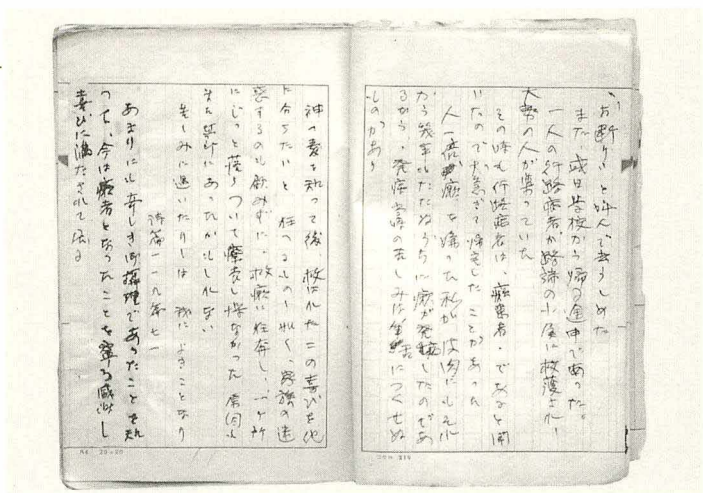 お断り」と叫んで去らしめた
また或日学校から帰る途中であった。
一人の行路病者が路端の小屋に救護され
大勢の人が集っていた
その時も行路病者は、癩患者・であると聞
いたので大急ぎで帰宅したことがあった
人一倍癩を怖った私が皮肉にもそれ
から幾年もたたぬうちに癩が発病したのであ
るから、発病当時の苦しみは筆舌につくせぬ
ものがあり
神の愛を知って後、救はれたこの喜びを他
に分ちたいと
惑するのも飲みずに、救癩に狂奔し、一ヶ所
にじっと落ちついて療養し得なかった
苦しみに遭いたりしは 我によきことなり
詩篇一一九章七一
あまりにも奇しき御摂理であったことを知
って、今は癩者となったことを寧ろ感謝し
喜びに満たされて居る